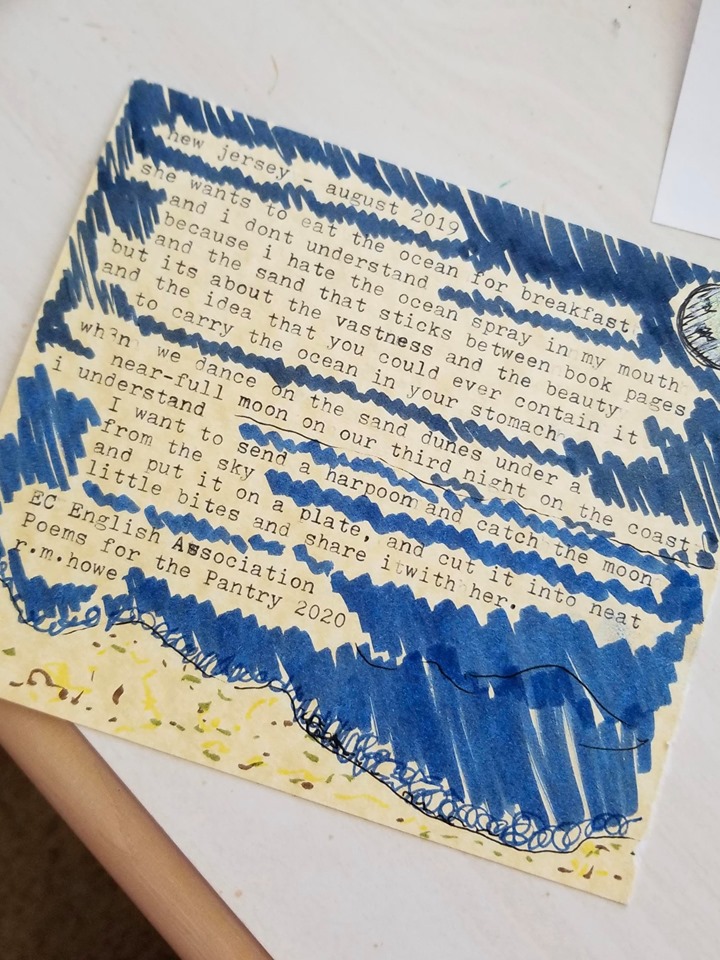 new jersey - august 2019
she wants to eat the ocean for breakfast
and i dont understand
because i hate the ocean spray in my mouth
and the sand that sticks between book pages
but its about the vastness and the beauty
and the idea that you could ever contain it
to carry the ocean in your stomach
when we dance on the sand dunes under a
near-full moon on our third night on the coast
i understand
I want to send a harpoon and catch the moon
from the sky
and put it on a plate, and cut it into neat
little bites and share itwith her.
EC English Association
Poems for the Pantry 2020
r.m.howe